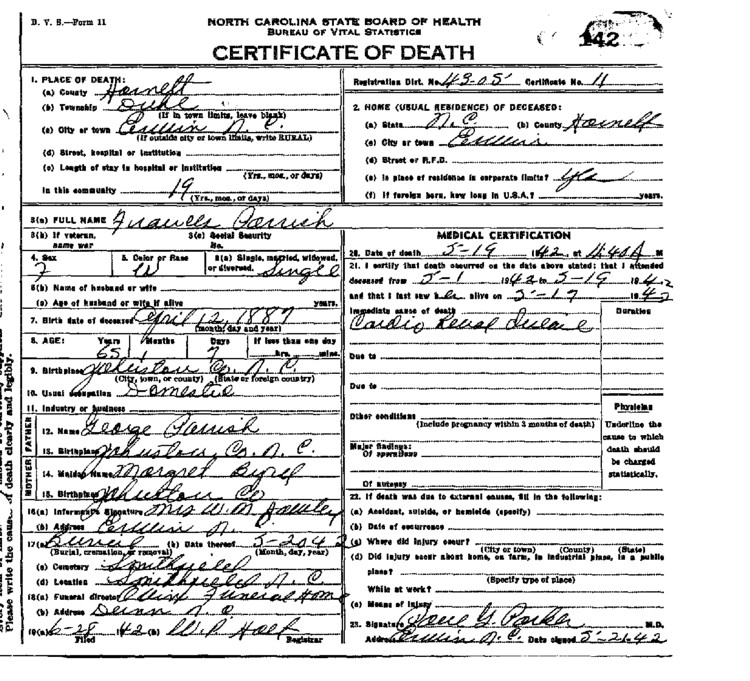 D. V. S.—Form 11
NORTH CAROLINA STATE BOARD OF HEALTH
BUREAU OF VITAL STATISTICS
CERTIFICATE OF DEATH
142
1. PLACE OF DEATH:
(a) County Harnett
(b) Township Duke
(If in town limits, leave blank)
(c) City or town Erwin N. C.
(If outside city or town limits, write RURAL)
(d) Street, hospital or institution
(e) Length of stay in hospital or institution
(Yrs., mos., or days)
In this community 19
(Yrs., mos., or days)
Registration Dist. No. 43-05 Certificate No. 11
2. HOME (USUAL RESIDENCE) OF DECEASED:
(a) State N. C. (b) County Harnett
(c) City or town Erwin
(d) Street or R.F.D.
(e) Is place of residence in corporate limits? Yes
(f) If foreign born, how long in U.S.A.? years.
3(a) FULL NAME Frances Parrish
3(b) If veteran, name war
3(c) Social Security No.
4. Sex F
5. Color or Race W
6(a) Single, married, widowed, or divorced. Single
6(b) Name of husband or wife
(c) Age of husband or wife if alive years.
7. Birth date of deceased April 12, 1887
(month, day and year)
8. AGE: Years Months Days If less than one day
65 1 7 hrs. mins.
9. Birthplace Johnston Co. N. C.
(City, town, or county) (State or foreign country)
10. Usual occupation Domestic
11. Industry or business
FATHER
12. Name George Parrish
13. Birthplace Johnston Co. N. C.
MOTHER
14. Maiden Name Margret Byrd
15. Birthplace Johnston Co
16(a) Informant's Signature Mrs W. M.
(b) Address Erwin N.
17(a) Burial (b) Date thereof 5-20 42
(Burial, cremation, or removal) (Month, day, year)
(c) Cemetery Smithfield
(d) Location Smithfield N. C.
18(a) Funeral director Funeral Home
(b) Address Dunn N. C.
19(a) 6-28 1942 (b) W. P. Holt
Filed Registrar
MEDICAL CERTIFICATION
20. Date of death 5-19 1942, at 11:40A M
21. I certify that death occurred on the date above stated; that I attended
deceased from 5-1 1942 to 5-19 1942
and that I last saw her alive on 5-19 1942
Immediate cause of death
Duration
Cardio Renal Disease
Due to
Due to
Other conditions
(Include pregnancy within 3 months of death)
Major findings:
Of operations
Of autopsy
Physician
Underline the cause to which death should be charged statistically.
22. If death was due to external causes, fill in the following:
(a) Accident, suicide, or homicide (specify)
(b) Date of occurrence
(c) Where did injury occur?
(City or town) (County) (State)
(d) Did injury occur about home, on farm, in industrial place, in a public
place?
(Specify type of place)
While at work?
(e) Means of injury
23. Signature G. Parker M.D.
Address Erwin N. C. Date signed 5-21-42
Please write the cause of death clearly and legibly.